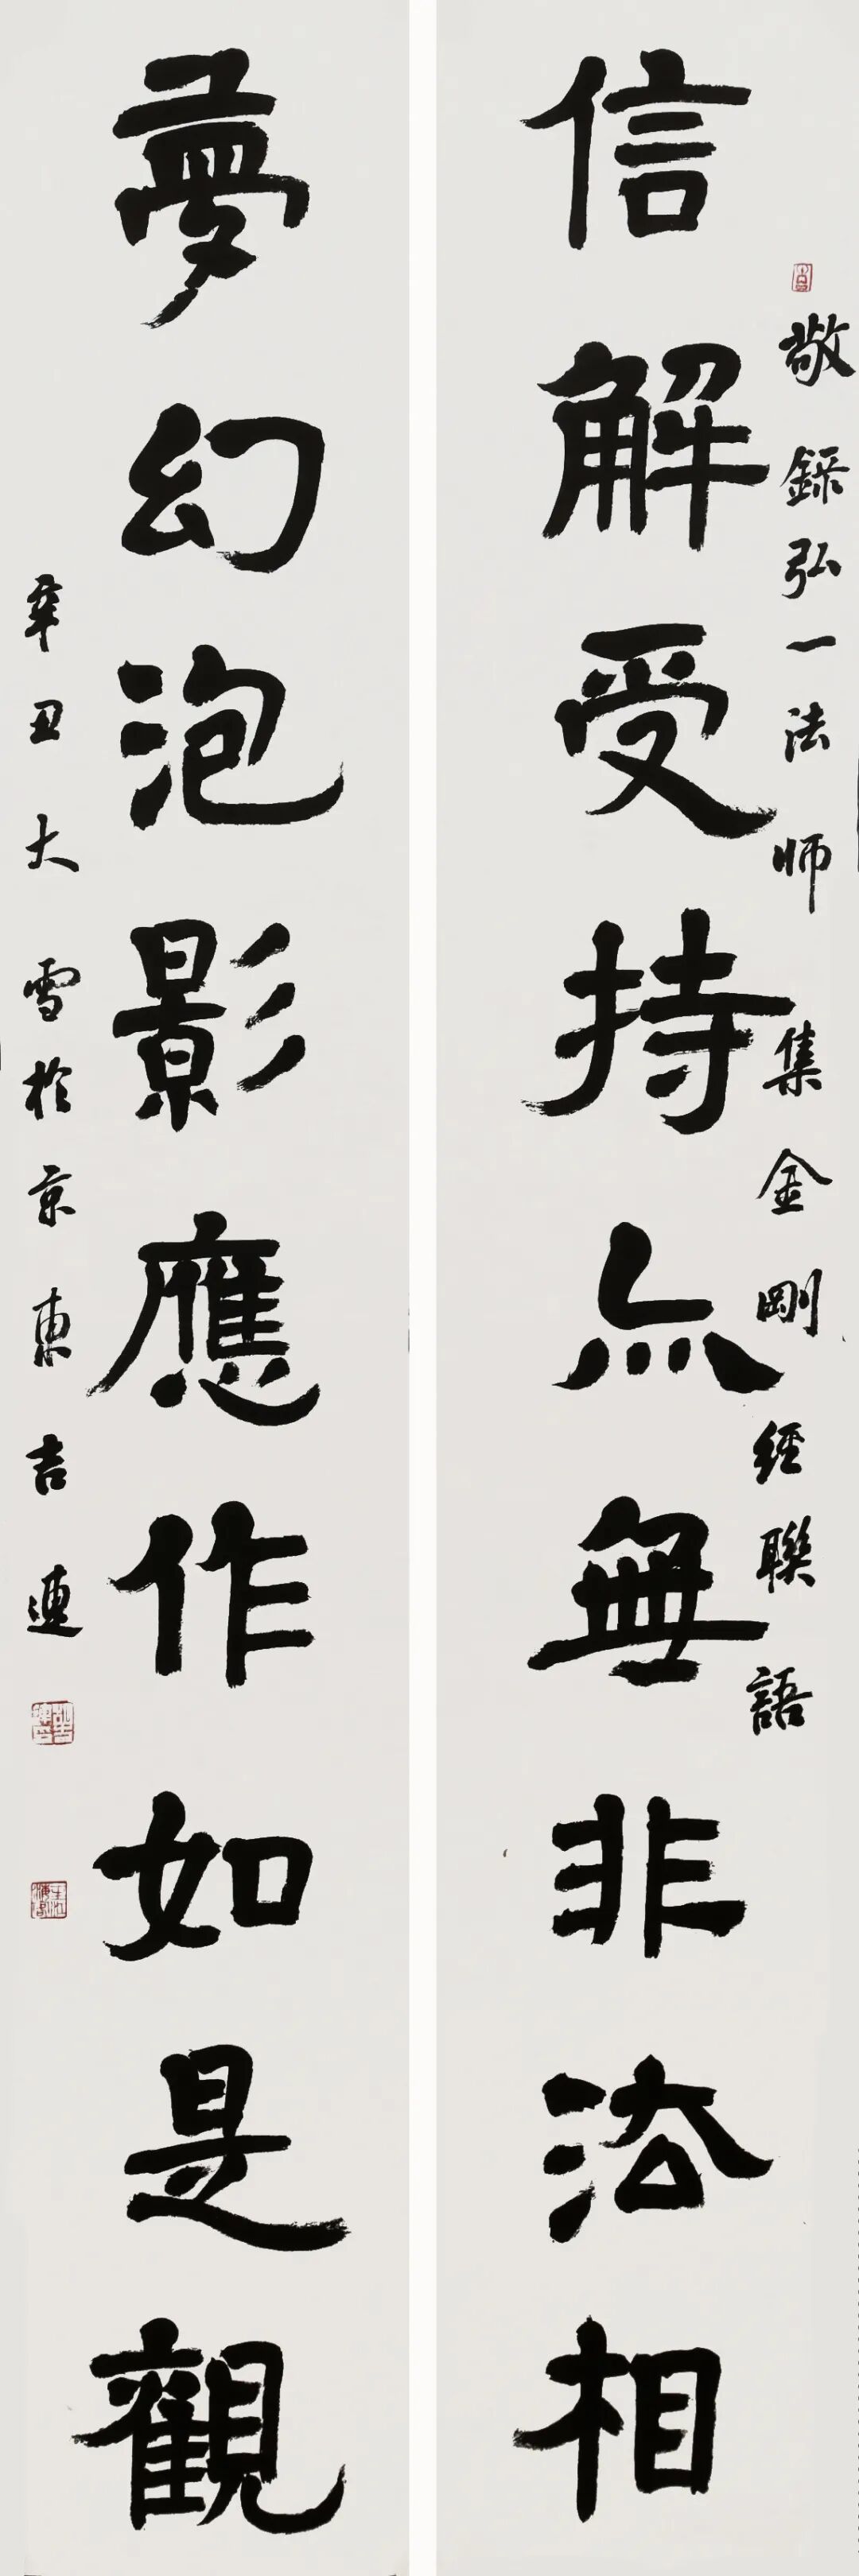 敬錄弘一法師集金剛經聯語
信解受持亦無非法相
夢幻泡影應作如是觀
辛丑大雪於京東吉連